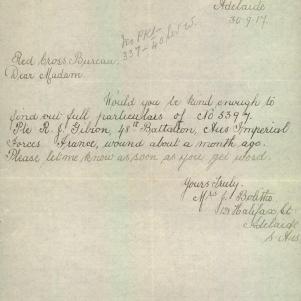 Adelaide
30-9-17.
Red Cross Bureau,
Dear Madam
Would you be kind enough to
find out full particulars of No 5397
Pte R. J. Gibson, 48th Battalion, Aus Imperial
Forces, France, wound about a month ago.
Please let me know as soon as you get word.
Yours Truly.
Mrs J. Bolitho
Halifax St
Adelaide
S. Aus